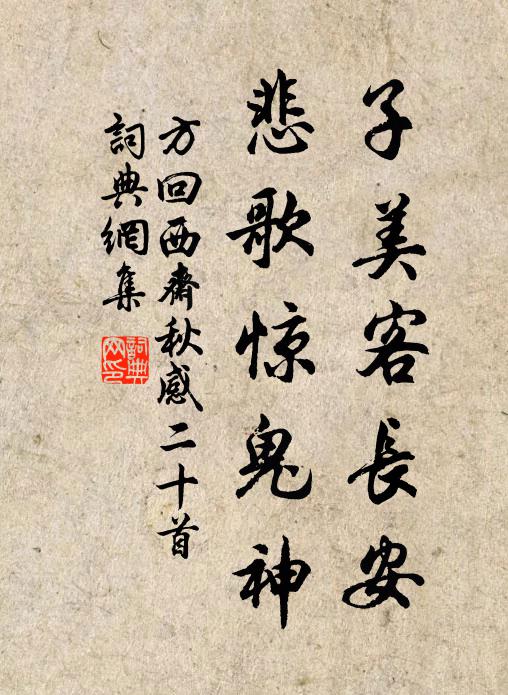 子美客長安
悲歌惊鬼神
方回西齋秋感二十首
詞典網集
詞典網印